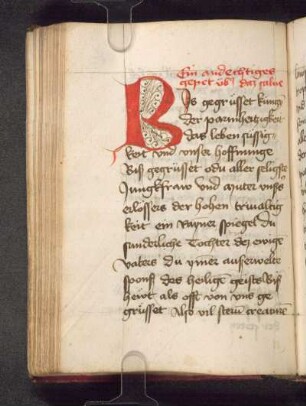 Ein andechtiges
gepet vb daz salue
Bis gegrüsset kungin
der parmhertzigkeit
das leben süssig
keit vnd vnser hoffnunge
Bis gegrüsset o du aller seligste
Jungkfraw vnd muter vnsers
erlosers der hohen triualtig
keit ein klarer spiegel du
sunderliche tochter des ewigen
vaters du ymer auserwelte
sponss des heilige geistes Bis
hewt als offt von vns ge
grüsset Also vil stern creaturen